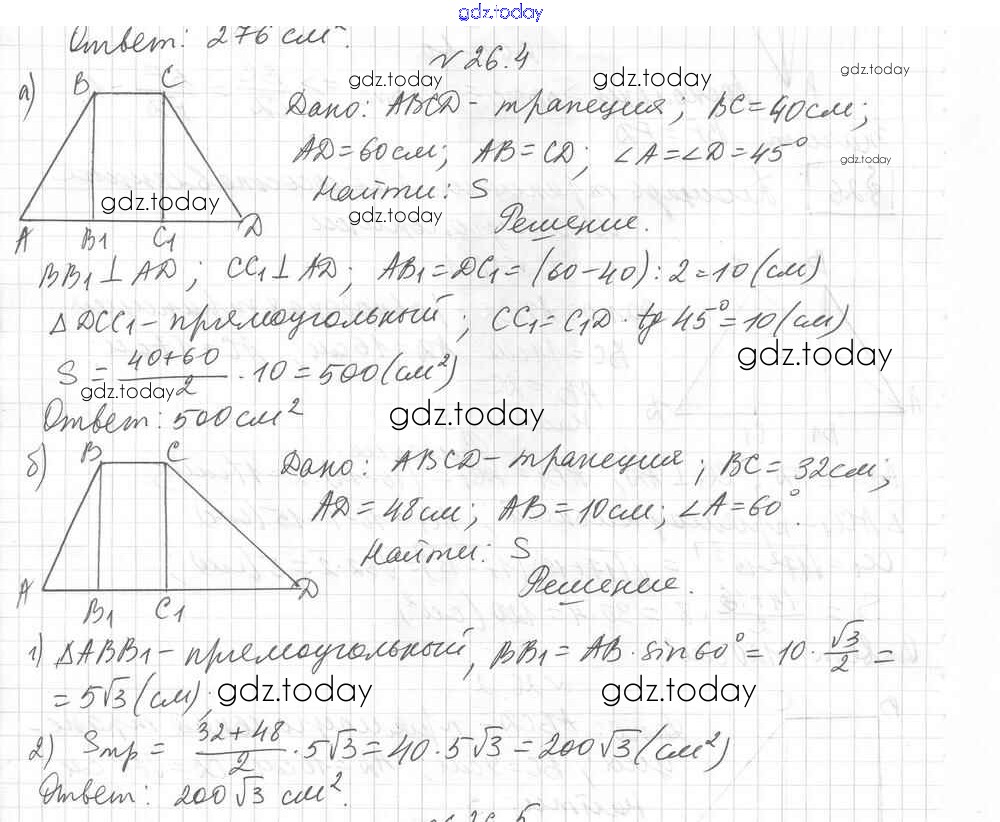 gdz.today
Ответ: 276 см².
№ 26.4
gdz.today gdz.today gdz.today
а) B C Дано: ABCD - трапеция; BC = 40 см;
AD = 60 см; AB = CD; ∠A = ∠D = 45°
gdz.today
Найти: S
gdz.today gdz.today
Решение.
A B1 C1 D
BB1 ⊥ AD; CC1 ⊥ AD; AB1 = DC1 = (60 - 40) : 2 = 10 (см)
△DCC1 - прямоугольный; CC1 = C1D · tg 45° = 10 (см)
gdz.today
S = (40+60)/2 · 10 = 500 (см²)
gdz.today
Ответ: 500 см²
gdz.today
б) B C Дано: ABCD - трапеция; BC = 32 см;
AD = 48 см; AB = 10 см; ∠A = 60°.
Найти: S
Решение.
A B1 C1 D
1) △ABB1 - прямоугольный, BB1 = AB · sin 60° = 10 · √3/2 =
= 5√3 (см);
gdz.today gdz.today
2) Sтр = (32+48)/2 · 5√3 = 40 · 5√3 = 200√3 (см²)
Ответ: 200√3 см².